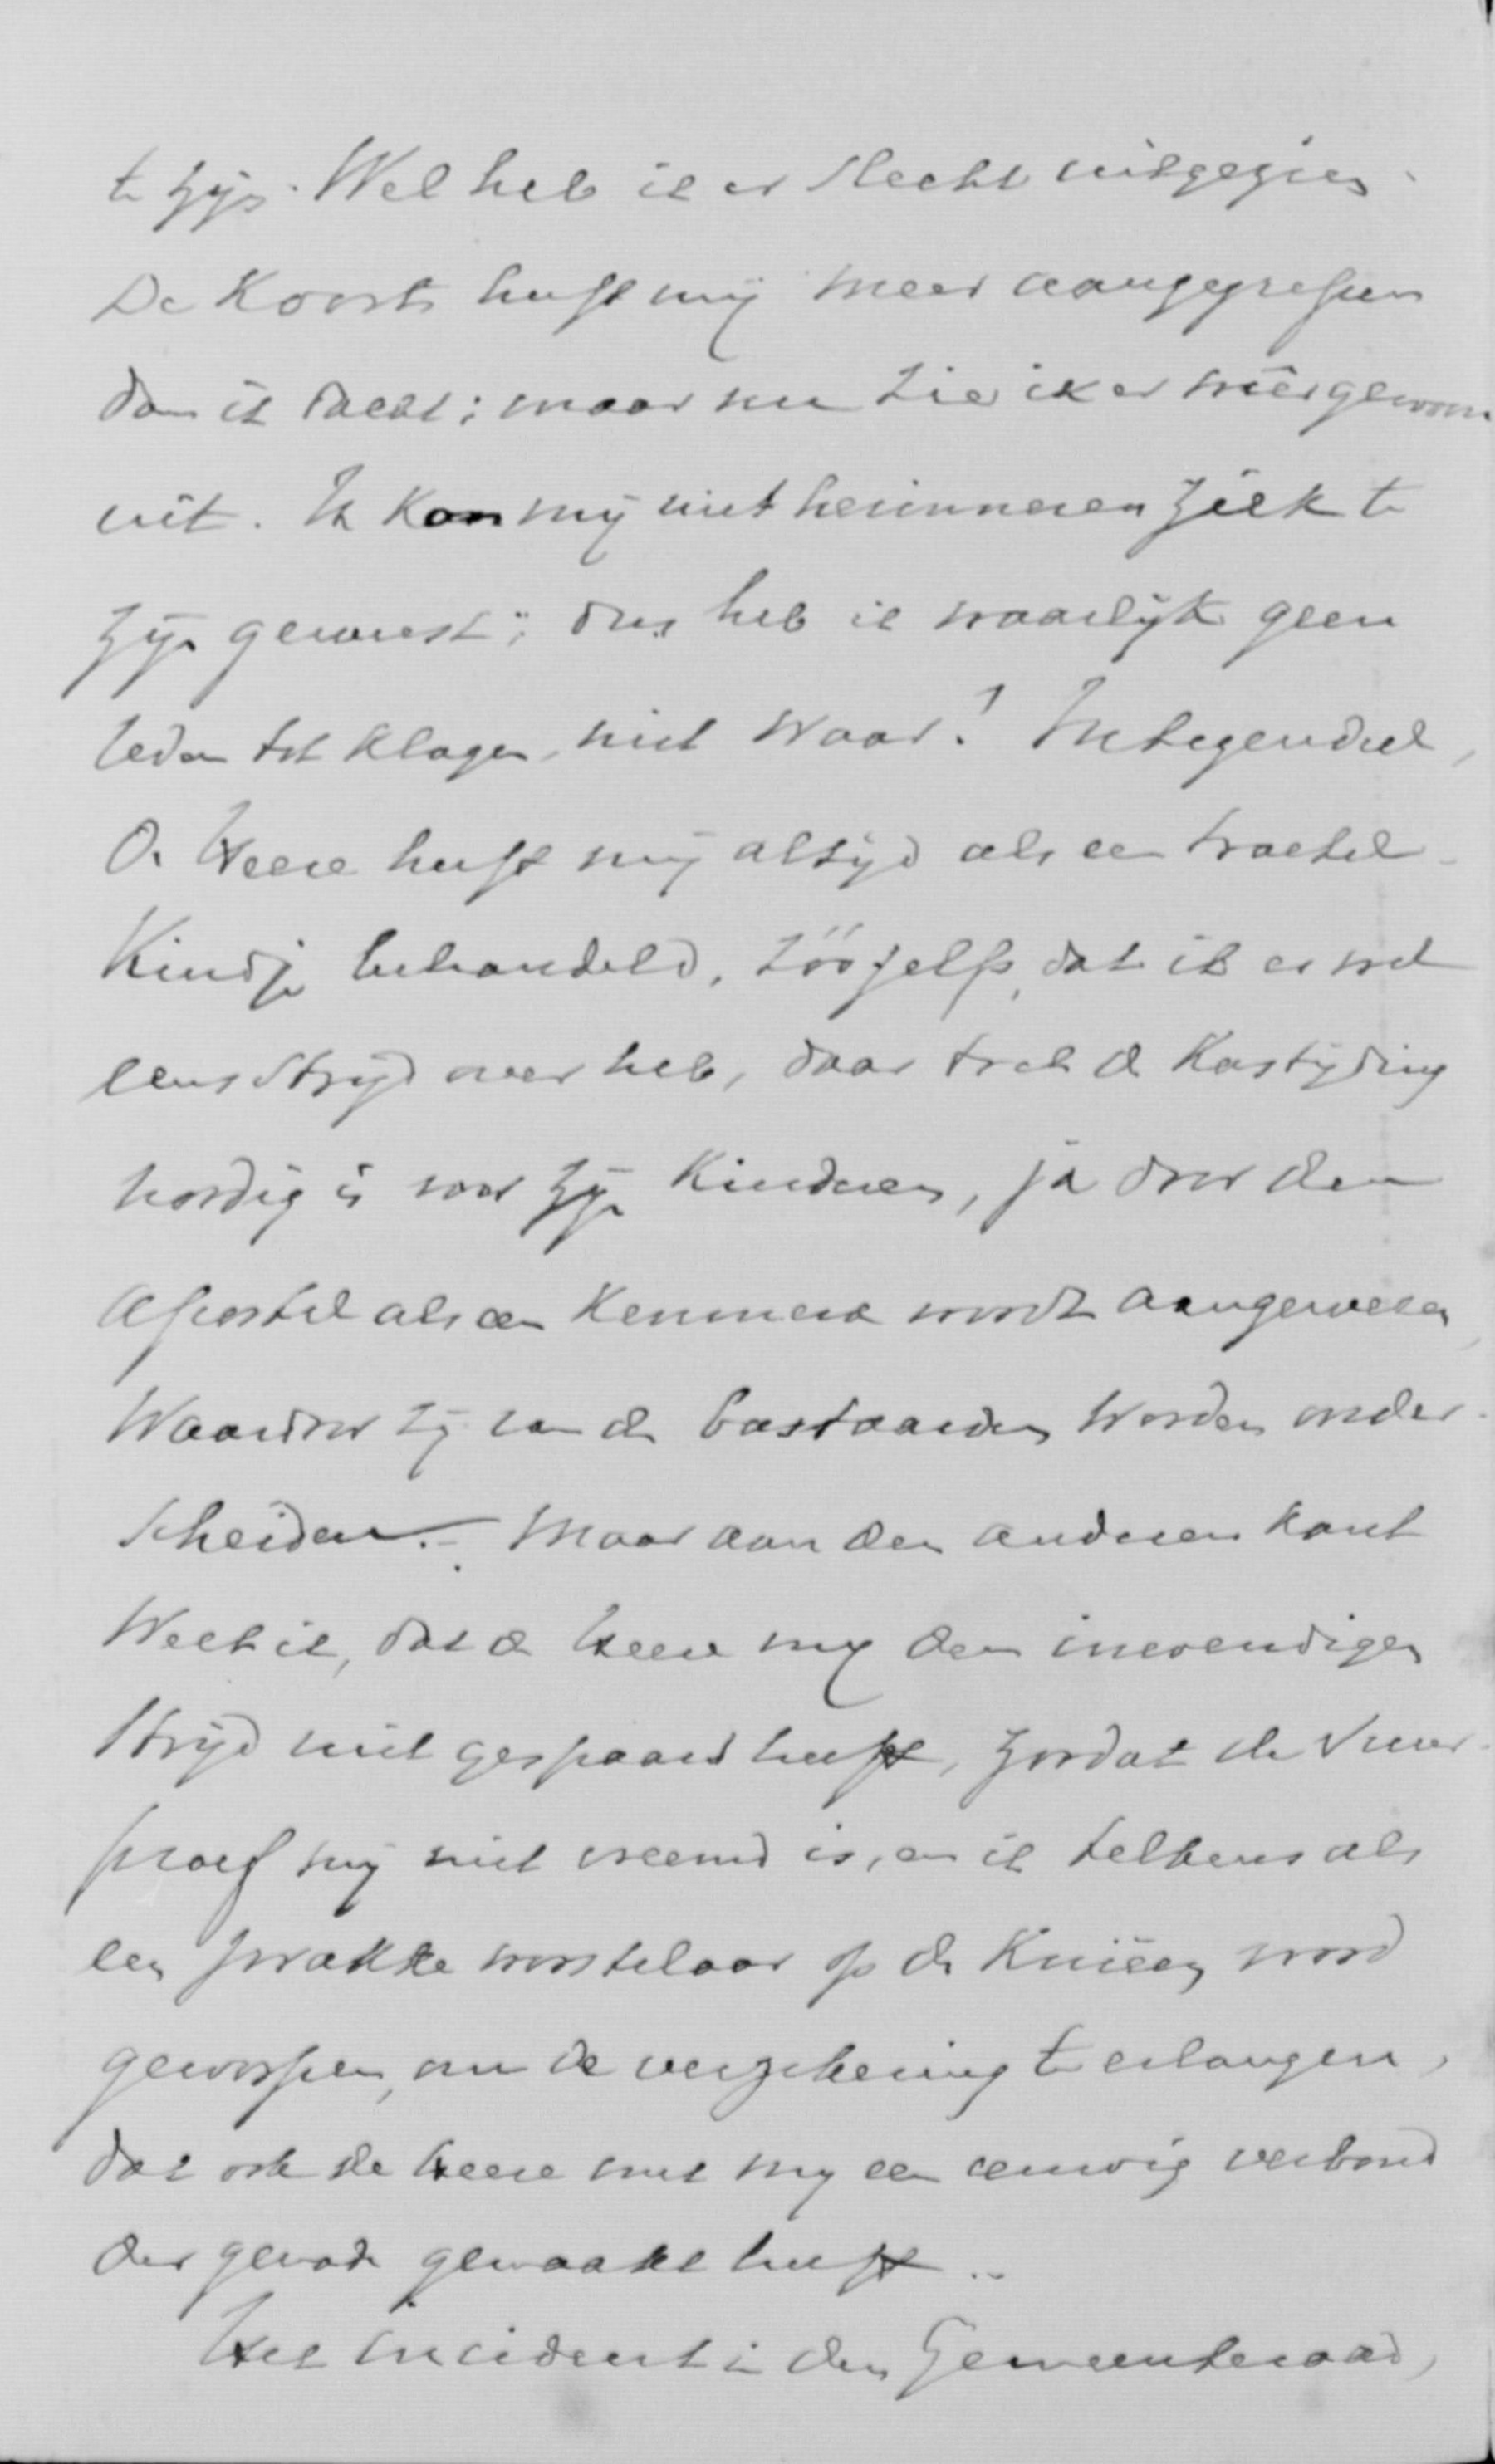 te zijn. Wel heb ik er slecht uitgezien.
De Koorts heeft mij meer aangegrepen
dan ik dacht; maar nu zie ik er weer gewoon
uit. Ik Kan mij niet herinneren ziek te
zijn geweest; dus heb ik waarlijk geen
reden tot klagen, niet waar? Integendeel,
De Heere heeft mij altijd als een troetel-
Kindje behandeld, zóó zelfs, dat ik er wel
eens strijd over heb, daar toch de Kastijding
noodig is voor zijn Kinderen, ja door den
Apostel als een Kenmerk wordt aangewezen,
Waardoor zij van de bastaarden worden onder-
scheiden. – Maar aan den anderen kant
Weet ik, dat de Heere mij den inwendigen
strijd niet gespaard heeft, zoodat de vuur-
proef mij niet vreemd is, en ik telkens als
een zwakke worstelaar op de Knieën word
geworpen, om de verzekering te erlangen,
dat ook de Heere met mij een eeuwig verbond
der genade gemaakt heeft..
Het incident in den Gemeenteraad,